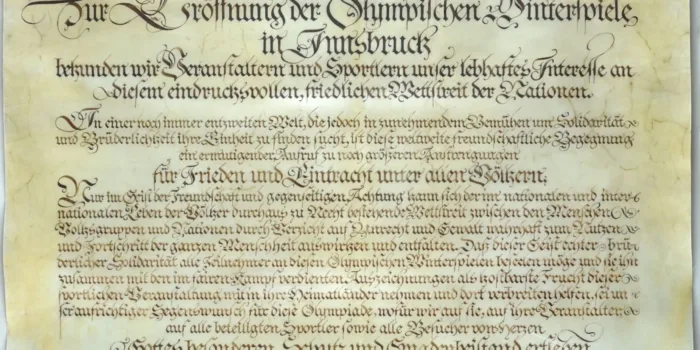 Zur Eröffnung der Olympischen Winterspiele
in Innsbruck
bekunden wir Veranstaltern und Sportlern unser lebhaftes Interesse an
diesem eindrucksvollen, friedlichen Wettstreit der Nationen.
In einer noch immer entzweiten Welt, die jedoch in zunehmendem Bemühen um Solidarität
und Brüderlichkeit ihre Einheit zu finden sucht, ist diese weltweite freundschaftliche Begegnung
ein ermutigender Aufruf zu noch größeren Anstrengungen
für Frieden und Eintracht unter allen Völkern.
Nur im Geist der Freundschaft und gegenseitigen Achtung kann sich der im nationalen und inter-
nationalen Leben der Völker durchaus zu Recht bestehende Wettstreit zwischen den Menschen
Volksgruppen und Nationen durch Verzicht auf Unrecht und Gewalt wahrhaft zum Nutzen
und Fortschritt der ganzen Menschheit auswirken und entfalten. Daß dieser Geist echter brü-
derlicher Solidarität alle Teilnehmer an diesen Olympischen Winterspielen beseelen möge und sie ihn
zusammen mit den im fairen Kampf verdienten Auszeichnungen als kostbarste Frucht dieser
sportlichen Veranstaltung mit in ihre Heimatländer nehmen und dort verbreiten helfen, sei un-
ser aufrichtiger Segenswunsch für diese Olympiade, wofür wir auf sie, auf ihre Veranstalter
auf alle beteiligten Sportler sowie alle Besucher von Herzen
Gottes besonderen Schutz und Gnadenbeistand erflehen